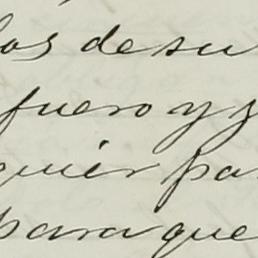 los de su
fuero y j
quier pa
para que